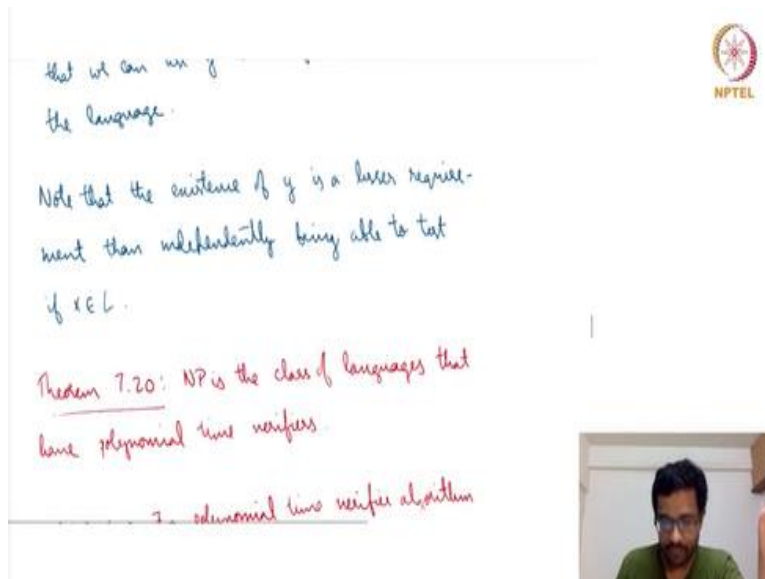 that we can use y
the language.
NPTEL
Note that the existence of y is a lesser require-
ment than independently being able to test
if x ∈ L.
Theorem 7.20: NP is the class of languages that
have polynomial time verifiers.
polynomial time verifier algorithm